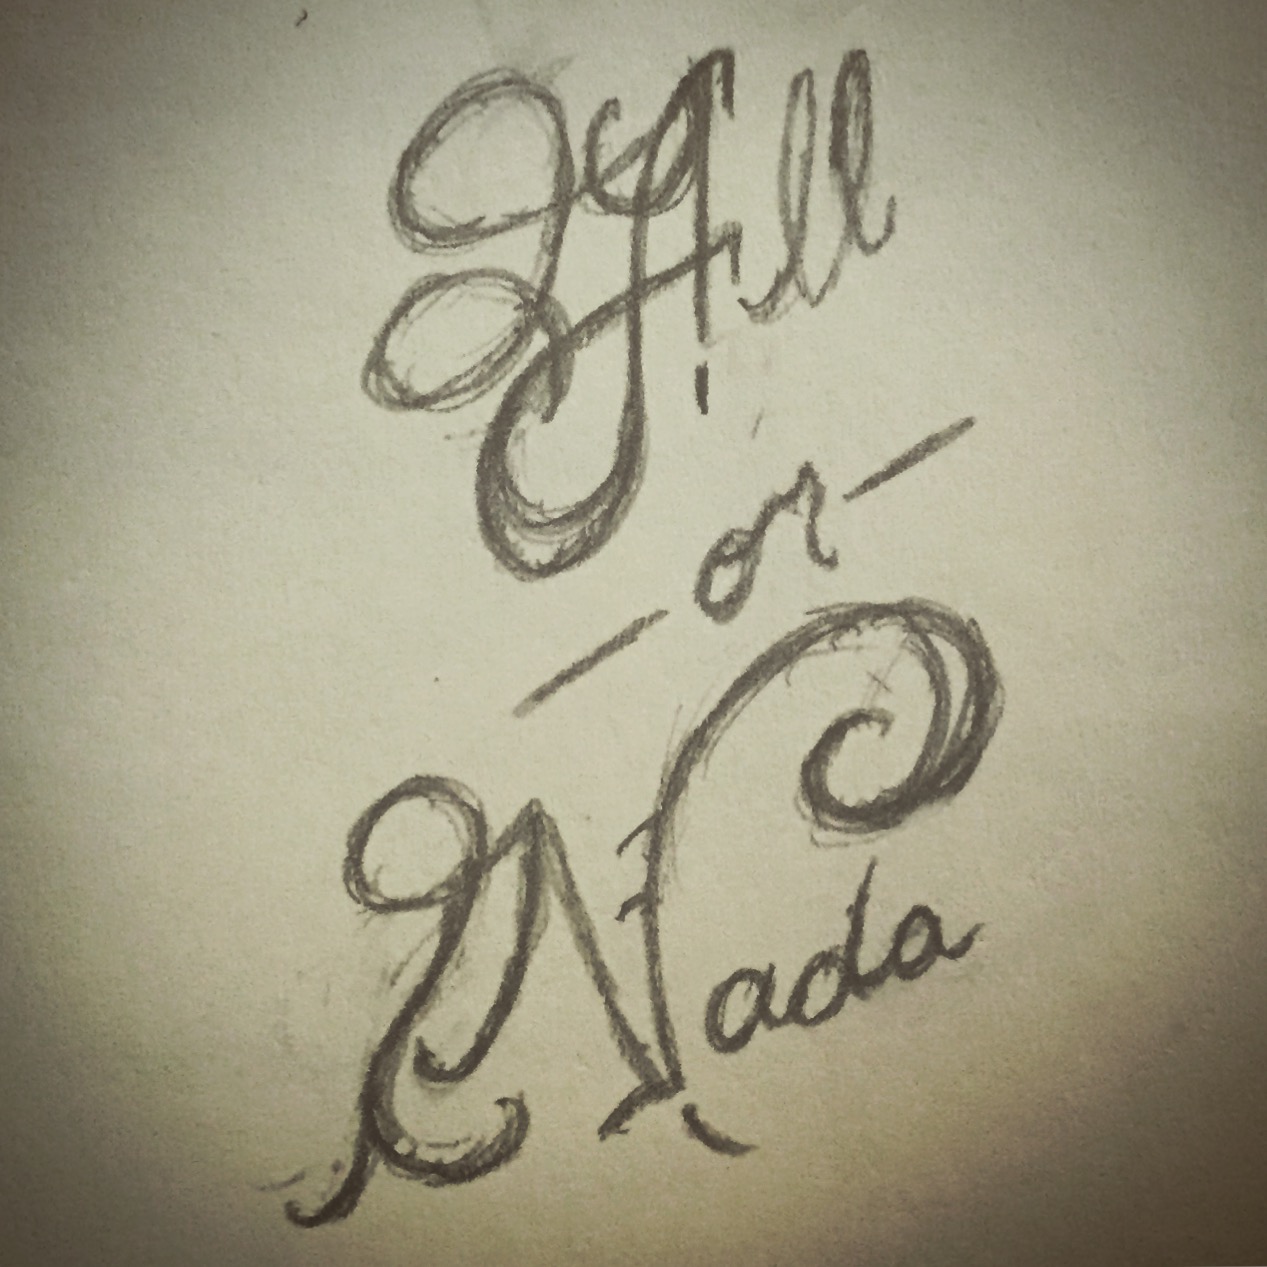 All
- or -
Nada